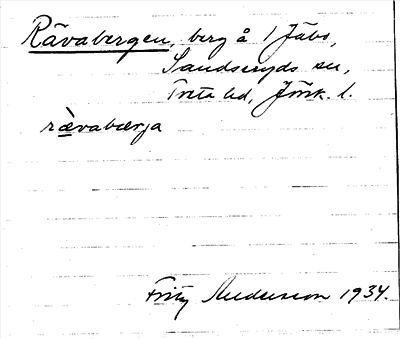 Rävabergen, berg å 1 Jäbo,
Sandseryds sn,
Tveta hd, Jönk. l.
rævabærja
Fritz Anderson 1934.